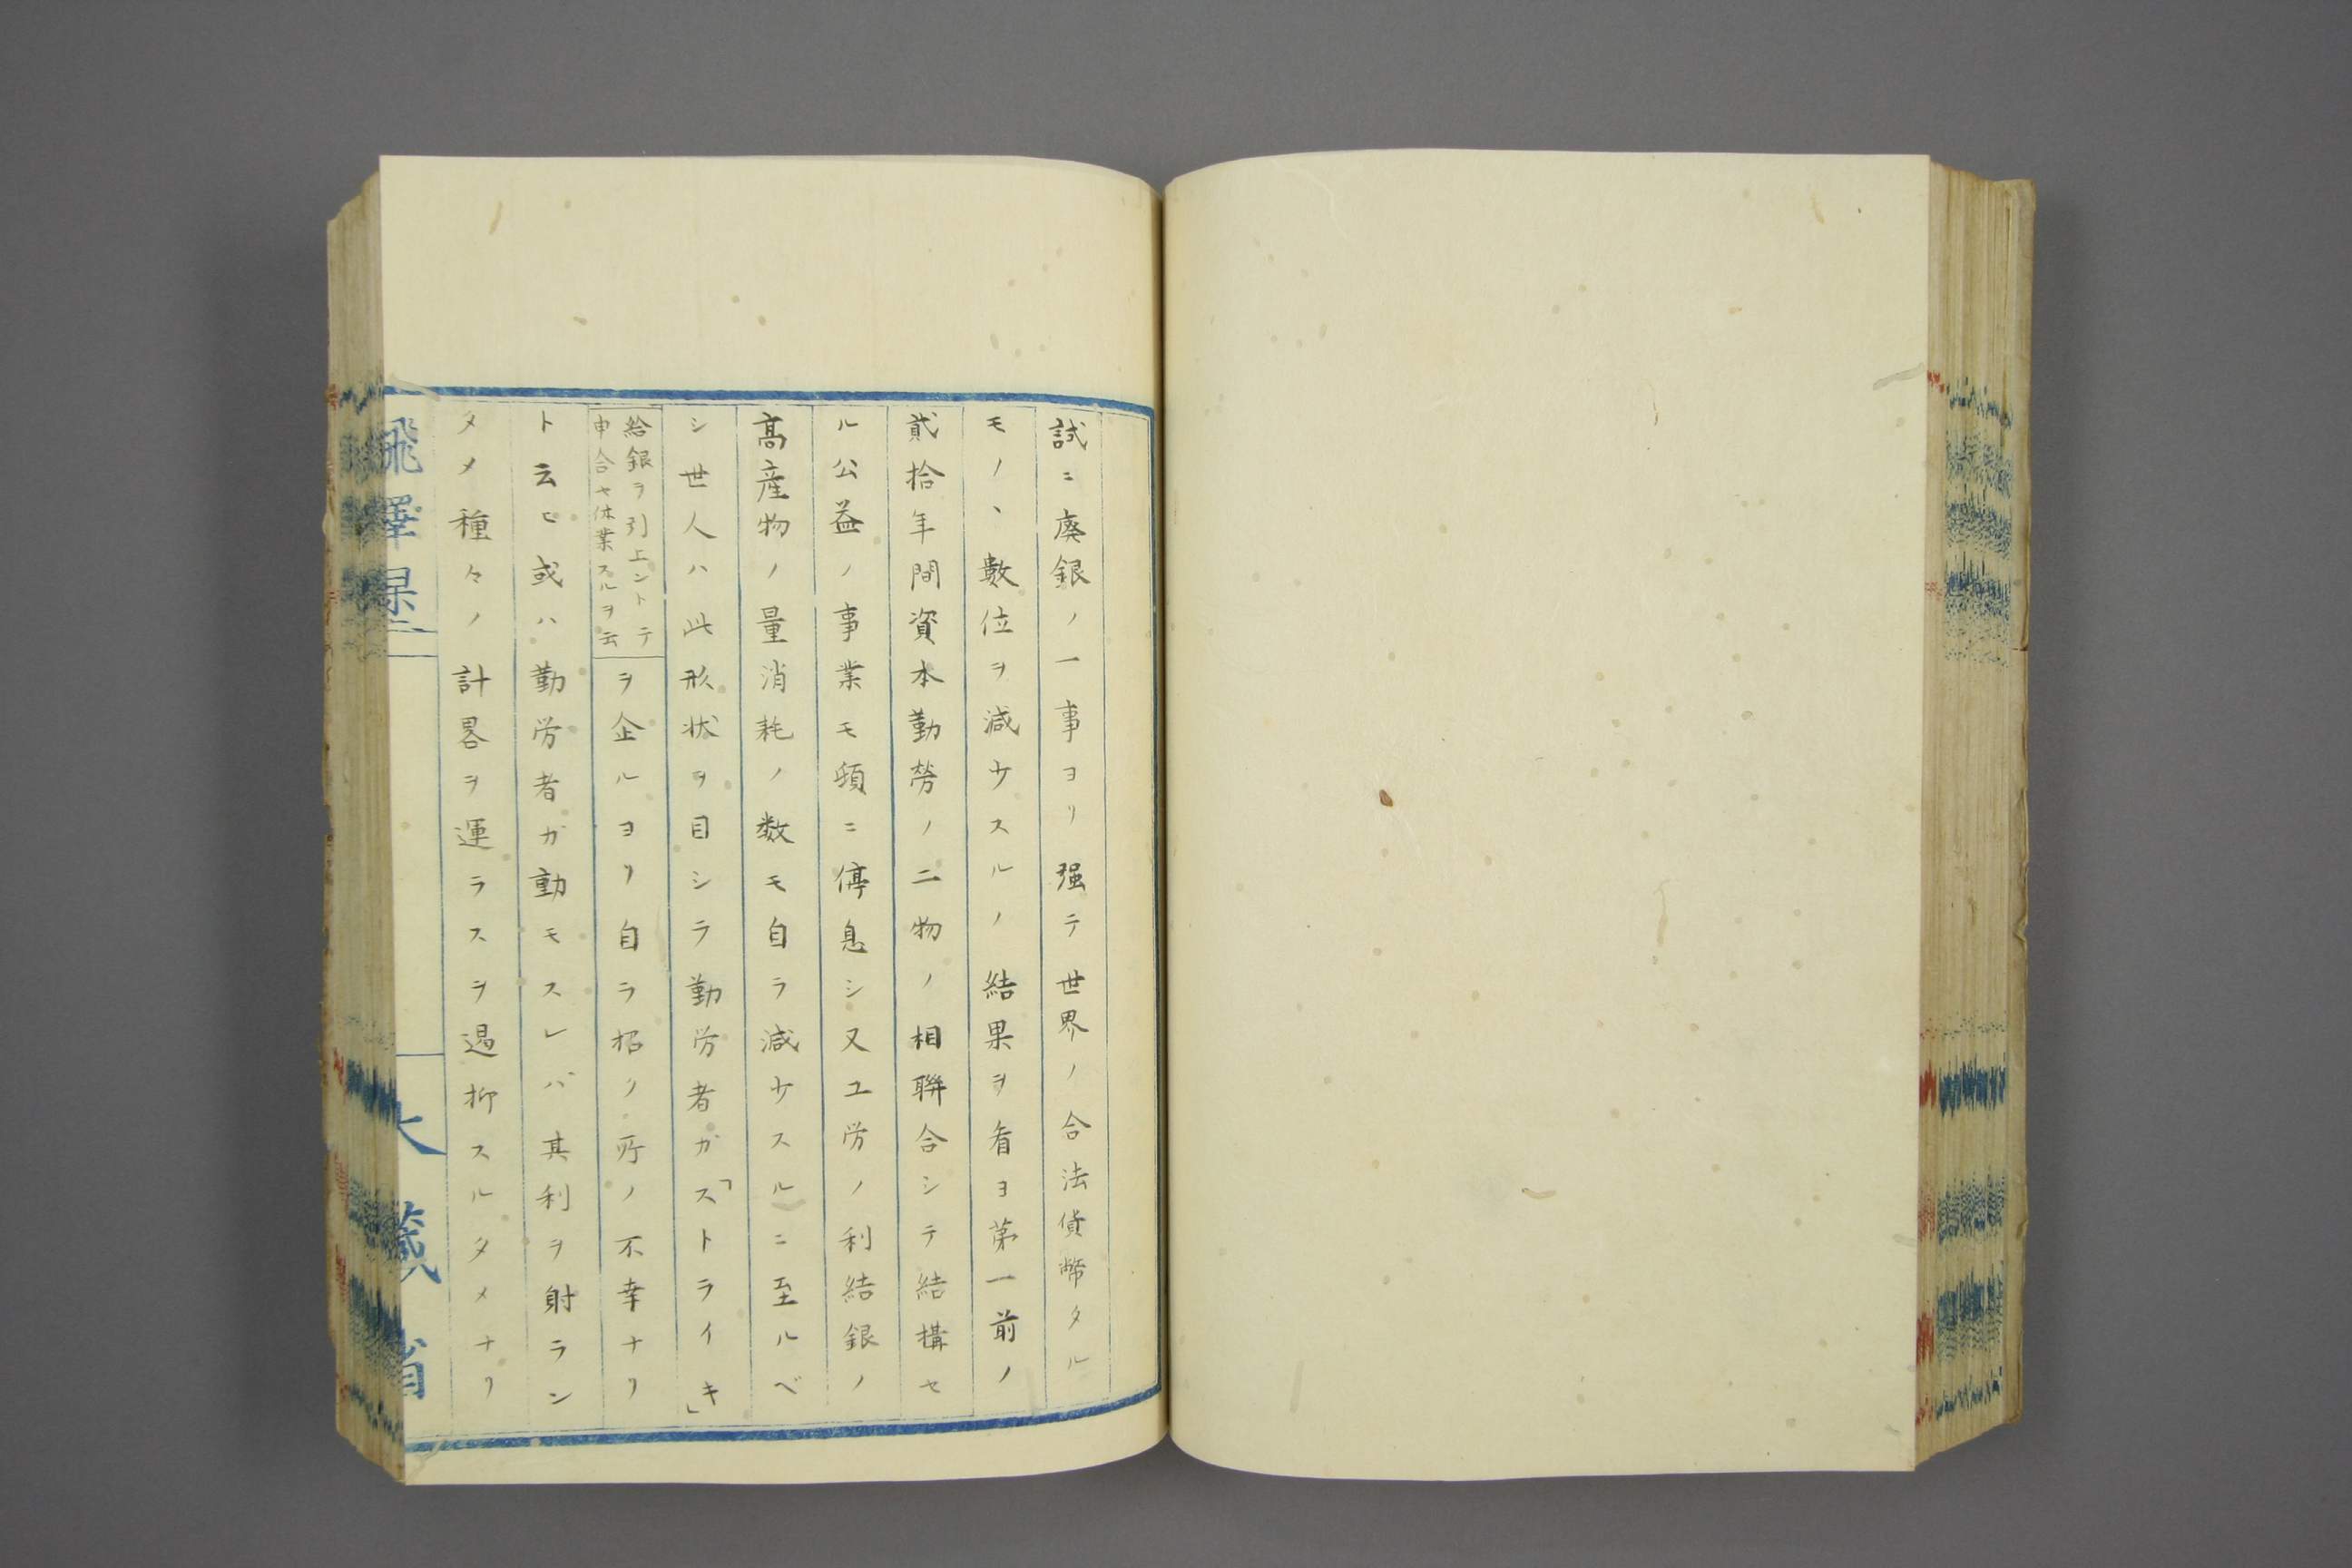 試ニ廃銀ノ一事ヨリ强テ世界ノ合法貨幣タル
モノヽ數位ヲ減少スルノ結果ヲ看ヨ苐一前ノ
貳拾年間資本勤勞ノ二物ノ相聯合シテ結構セ
ル公益ノ事業モ頓ニ停息シ又工労ノ利結銀ノ
高産物ノ量消耗ノ数モ自ラ減少スルニ至ルベ
シ世人ハ此形状ヲ目シラ勤労者ガ「ストライキ」
給銀ヲ引上ントテ
申合セ休業スルヲ云
ヲ企ルヨリ自ラ招ク所ノ不幸ナリ
ト云ヒ或ハ勤労者ガ動モスレバ其利ヲ射ラン
タメ種々ノ計畧ヲ運ラスヲ遏抑スルタメナリ
大藏省